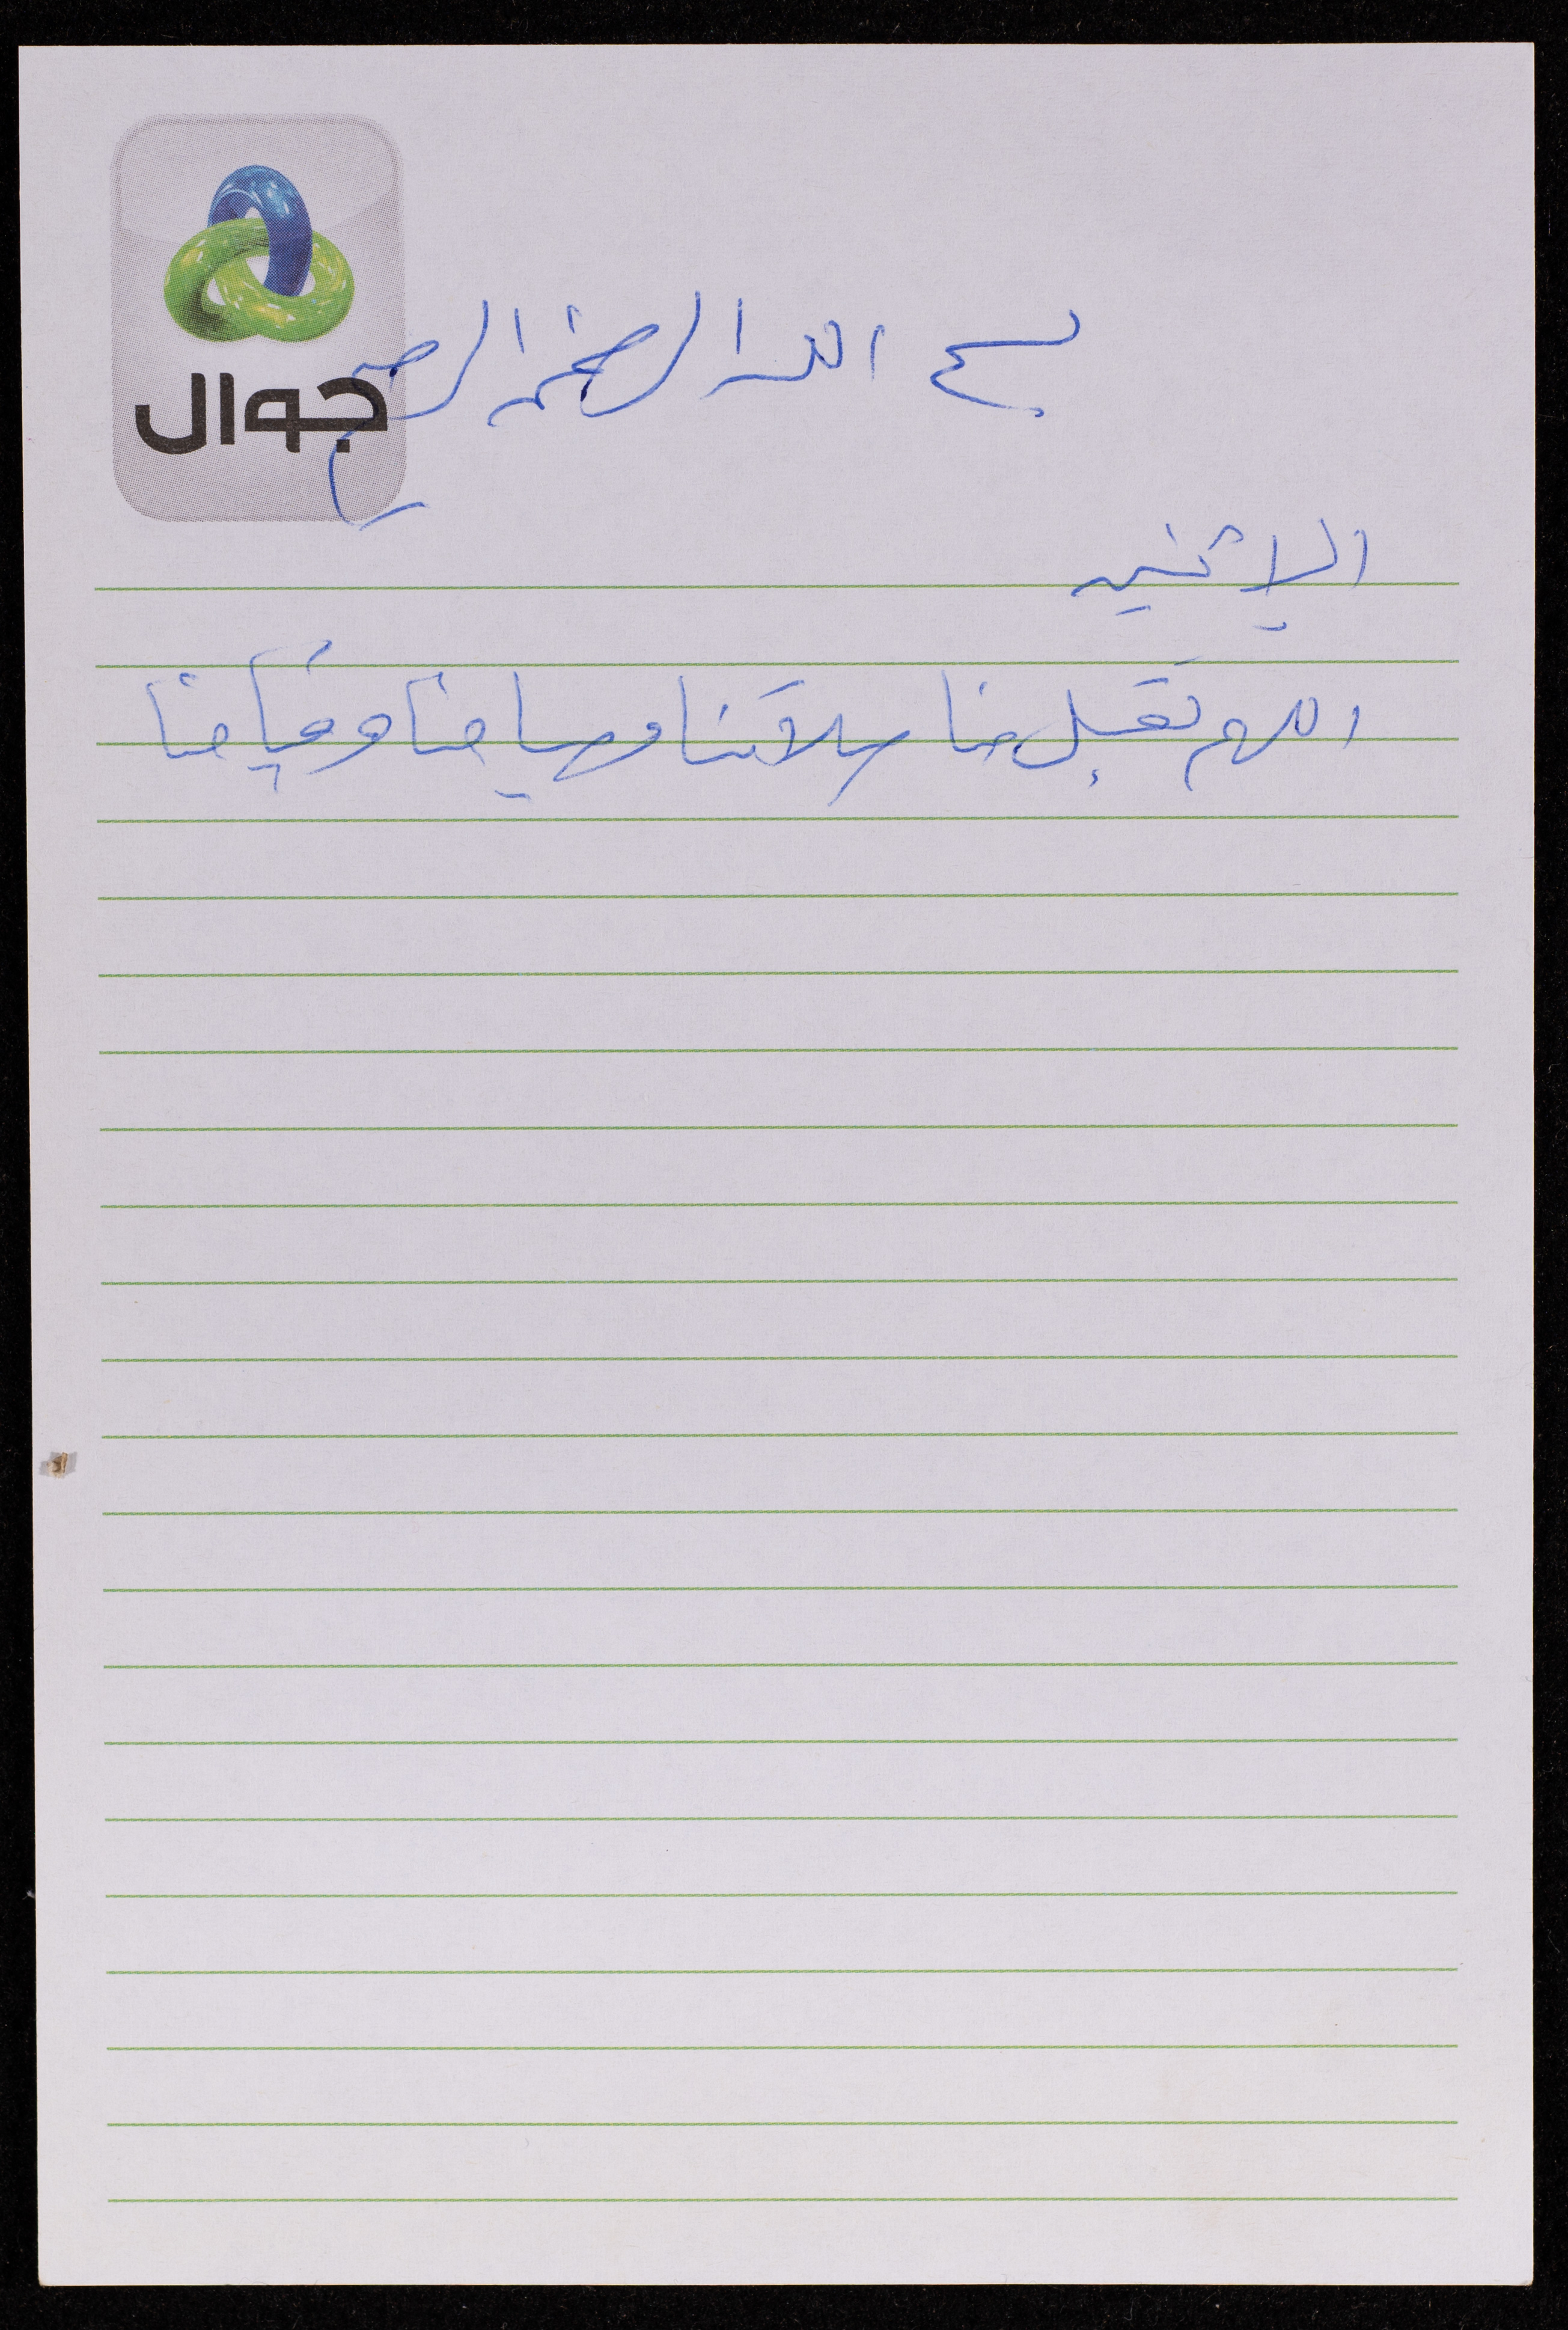 جوال
بسم الله الرحمن الرحيم
الإثنين
اللهم تقبل منا صلاتنا وصيامنا وقيامنا